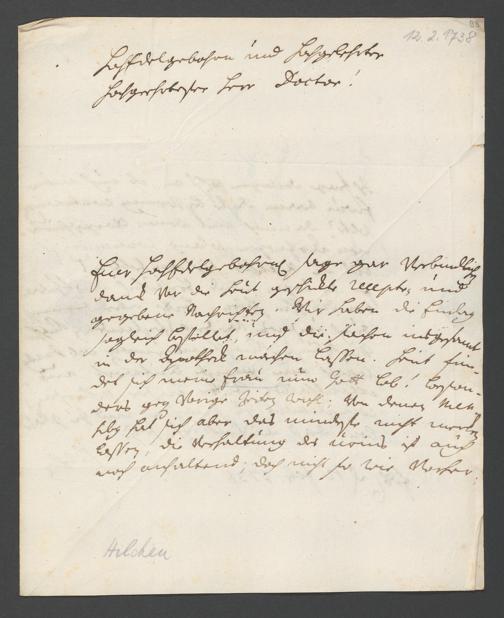 12. 2. 1738
HochEdelgebohrn und Hochgelehrter
Hochgeehrtester Herr Doctor!
Euer HochEdelgebohrn sage gar Verbundlich
danck vor die heut geschickte recepte, und
gegebene Nachrichten. Wir haben die
sogleich bestellet, und die sachen insgesamt
in der Apothek machen lassen. heut fin-
det sich meine frau nun Gott lob! beson-
ders geg Vorige Zeiten wohl; Von denen
hat sich aber das mindeste nicht mercken
lassen, die Verhaltung des urins ist auch
noch anhaltend, doch nicht so wie Vorher,
Hilchen